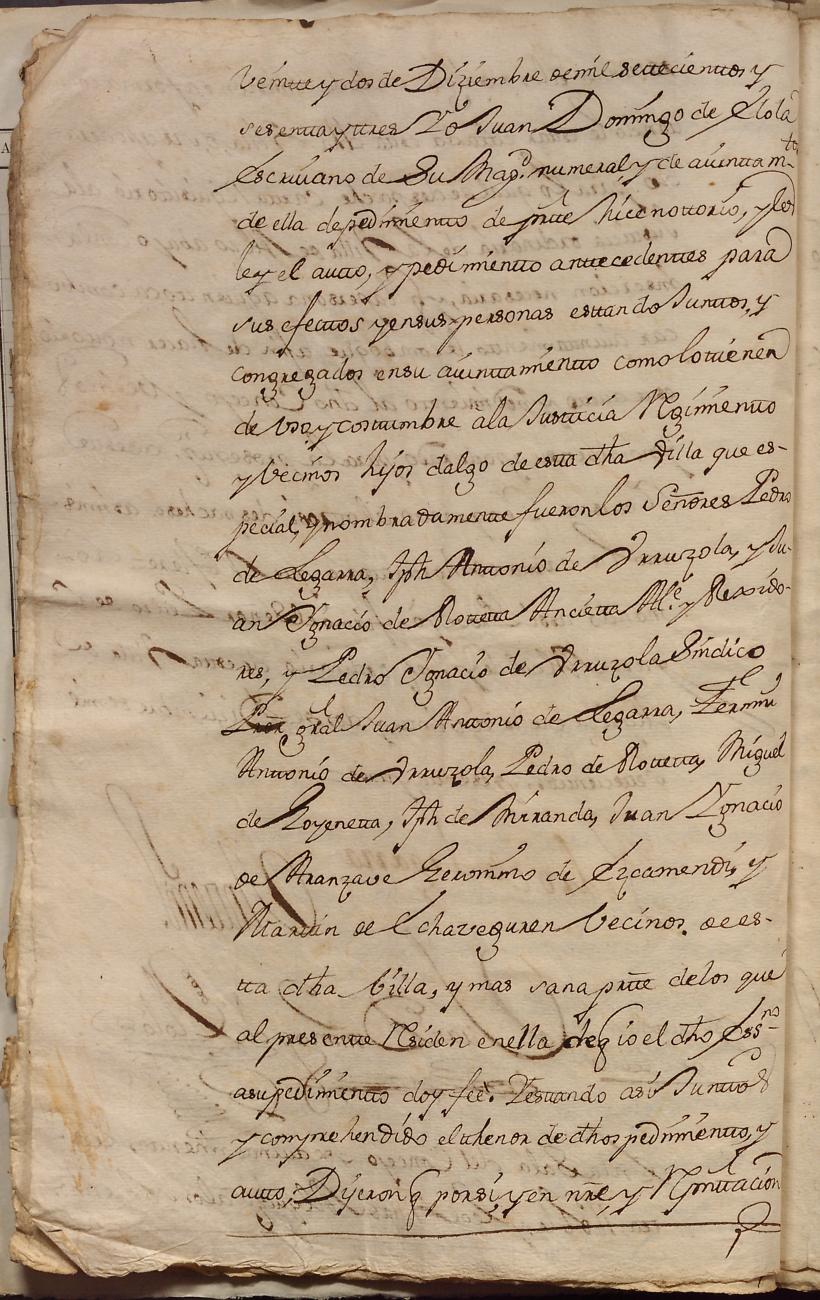 veintte y dos de Diziembre de mil settecienttos y
sesentta y ttres Yo Juan Domingo de Elola
Escrivano de Su Magd. numeral y de aiunttamtto
de ella de pedimientto de partte hice nottorio, y les
ley el autto, y pedimientto anttecedenttes para
sus efecttos y en sus personas esttando Junttos, y
congregados en su aiunttamientto como lo ttienen
de vso y costtumbre a la Justticia Rejimientto
y Vecinos hijos dalgo de estta dha Villa que es-
pecial, y nombradamentte fueron los Señores Pedro
de Legarra, Jph Anttonio de Vrruzola, y Ju-
an Ygnacio de Rotetta Ancietta Alle. y Rexido-
res, y Pedro Ygnacio de Vrruzola Sindico
Pror gral Juan Anttonio de Legarra, Fermin
Anttonio de Vrruzola, Pedro de Rotetta, Miguel
de Goyenetta, Jph de Miranda, Juan Ygnacio
de Aranzave Geronimo de Ezcamendi, y
Marttin de Echaveguren Vecinos de es-
tta dha Villa, y mas sana partte de los que
al presentte Residen en ella de q io el dho Essno
a su pedimientto doy feè. Y esttando asi Junttos
y comprehendido el thenor de dhos pedimientto, y
autto, Dijeron q por si, y en nre, y Rpnttacion